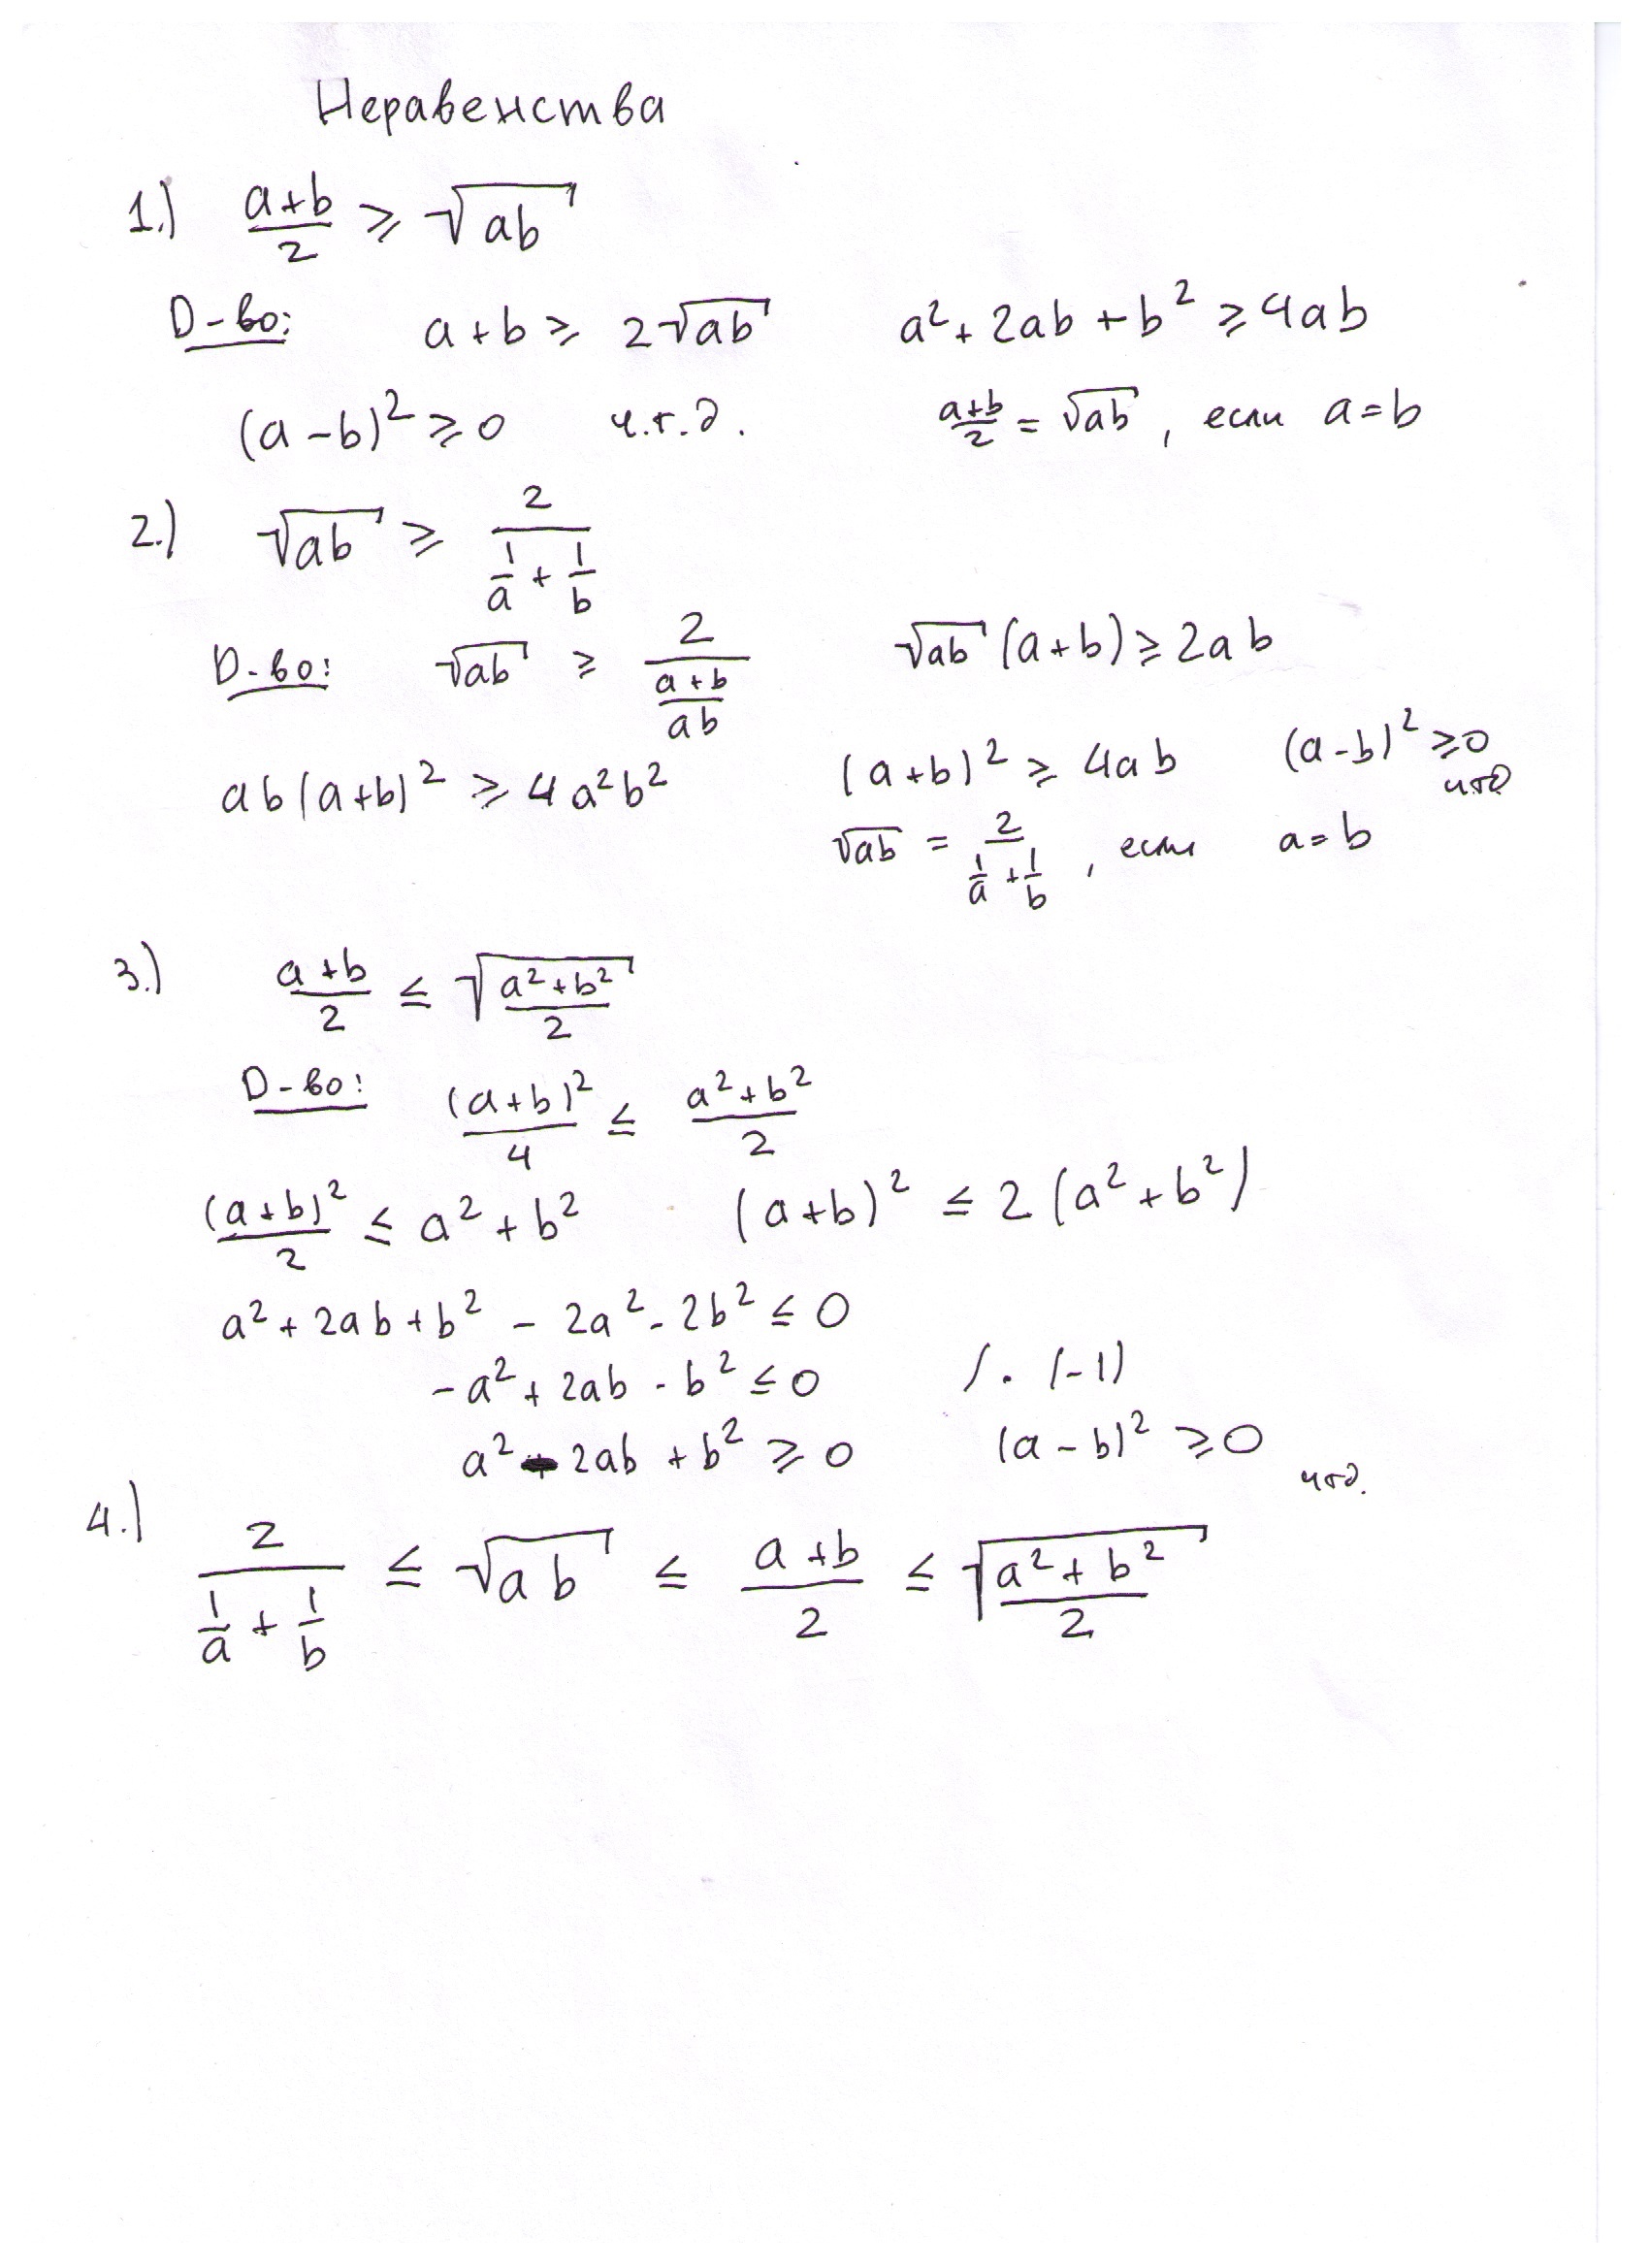 Неравенства
1.) (a+b)/2 ≥ √(ab)
D-во: a + b ≥ 2√(ab) a² + 2ab + b² ≥ 4ab
(a-b)² ≥ 0 ч.т.д. (a+b)/2 = √(ab), если a = b
2.) √(ab) ≥ 2/(1/a + 1/b)
D-во: √(ab) ≥ 2/((a+b)/(ab)) √(ab) (a+b) ≥ 2ab
ab(a+b)² ≥ 4a²b² (a+b)² ≥ 4ab (a-b)² ≥ 0 чтд
√(ab) = 2/(1/a + 1/b), если a = b
3.) (a+b)/2 ≤ √((a²+b²)/2)
D-во: (a+b)²/4 ≤ (a²+b²)/2
(a+b)²/2 ≤ a² + b² (a+b)² ≤ 2(a²+b²)
a² + 2ab + b² - 2a² - 2b² ≤ 0
-a² + 2ab - b² ≤ 0 /·(-1)
a² - 2ab + b² ≥ 0 (a-b)² ≥ 0 чтд.
4.) 2/(1/a + 1/b) ≤ √(ab) ≤ (a+b)/2 ≤ √((a²+b²)/2)